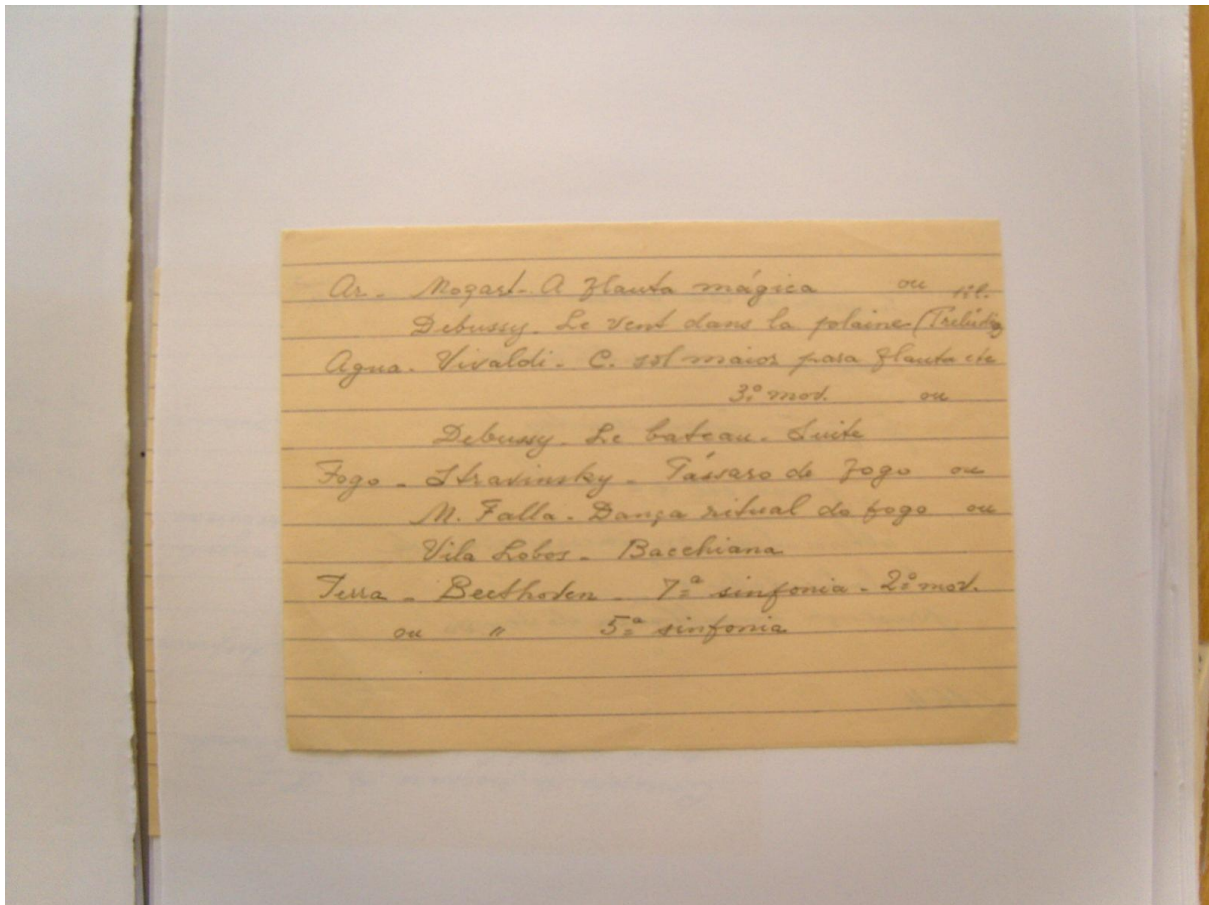 Ar - Mozart - A flauta mágica ou
Debussy - Le vent dans la polaine (Prelúdio
Agua - Vivaldi - C. sol maior para flauta
3º mov. ou
Debussy - Le bateau - Suite
Fogo - Stravinsky - Pássaro de fogo ou
M. Falla - Dança ritual do fogo ou
Vila Lobos - Bacchiana
Terra - Beethoven - 7ª sinfonia - 2º mov.
ou " 5ª sinfonia